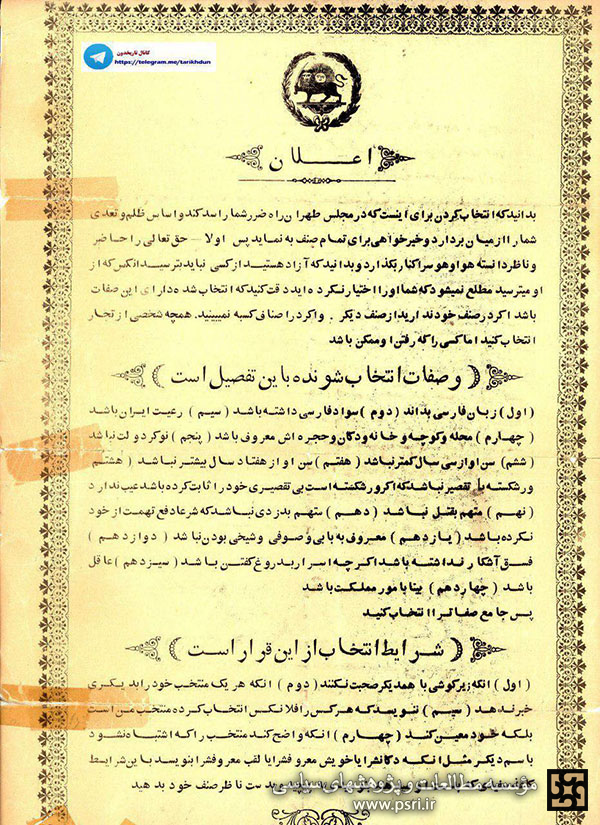 کانال تاریخدون
https://telegram.me/tarikhdun
اعلان
بدانید که انتخاب کردن برای اینست که در مجلس طهران راه ضرر شما را سد کند و اساس ظلم و تعدی
شما را از میان بردارد و خیرخواهی برای تمام صنف به نماید پس اولا — حق تعالی را حاضر
و ناظر دانسته هوا و هوس را کنار بگذارد و بدانید که آزاد هستید از کسی نباید بترسید آنکس که از
او میترسید مطلع نمیشود که شما او را اختیار نکرده اید دقت کنید که انتخاب شده دارای این صفات
باشد اگر در صنف خودند ارید از صنف دیگر . و اگر در اصناف کسبه نمیبینید. همچه شخصی از تجار
انتخاب کنید اما کسی را که رفتن او ممکن باشد
( وصفات انتخاب شونده باین تفصیل است )
( اول ) زبان فارسی بداند ( دوم ) سواد فارسی داشته باشد ( سیم ) رعیت ایران باشد
( چهارم ) محله و کوچه و خانه و دکان و حجره اش معروف باشد ( پنجم ) نوکر دولت نباشد
( ششم ) سن او از سی سال کمتر نباشد ( هفتم ) سن او از هفتاد سال بیشتر نباشد ( هشتم )
ورشکسته با تقصیر نباشد که اگر ورشکسته است بی تقصیری خود را ثابت کرده باشد عیب ندارد
( نهم ) متهم بقتل نباشد ( دهم ) متهم بدزدی نباشد که شرعا دفع تهمت از خود
نکرده باشد ( یازدهم ) معروف به بابی و صوفی و شیخی بودن نباشد ( دوازدهم )
فسق آشکار نداشته باشد اگرچه اسرار بدروغ گفتن باشد ( سیزدهم ) عاقل
باشد ( چهاردهم ) بینا بامور مملکت باشد
پس جامع صفات را انتخاب کنید
( شرایط انتخاب از این قرار است )
( اول ) آنکه زیر گوشی با همدیگر صحبت نکنند ( دوم ) آنکه هر یک منتخب خود را بدیگری
خبر ندهد ( سیم ) ننویسد که هر کس را فلانکس انتخاب کرده منتخب من است
بلکه خود معین کند ( چهارم ) آنکه واضح کند منتخب را که اشتباه نشود
باسم دیگر مثل آنکه دکانش را یا خویش معروفش را یا لقب معروفش را بنویسد با این شرایط
بدست ناظر صنف خود بدهید
مؤسسه مطالعات و پژوهشهای سیاسی
www.psri.ir